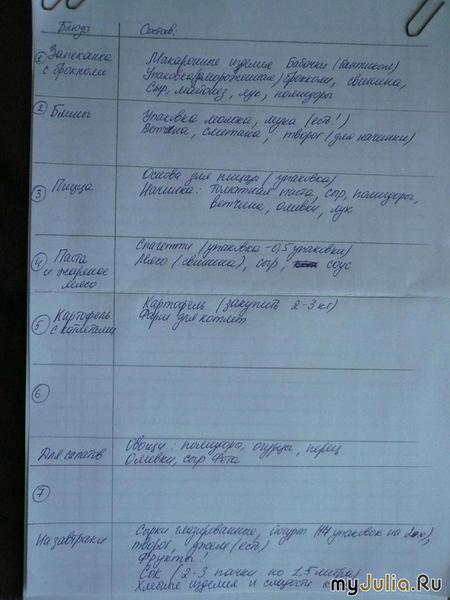 Блюдо Состав:
① Запеканка с брокколи
Макаронные изделия Бабочки (бантиком)
Упаковка (замороженная) брокколи, свинина,
Сыр, майонез, лук, помидоры
② Блины
Упаковка молока, мука (есть!)
Ветчина, сметана, творог (для начинки)
③ Пицца
Основа для пиццы (упаковка)
Начинка: томатная паста, сыр, помидоры,
ветчина, оливки, лук
④ Паста и жареное мясо
Спагетти (упаковка - 0,5 упаковки)
Мясо (свинина), сыр, соус
⑤ Картофель с котлетами
Картофель (закупить 2-3 кг)
Фарш для котлет
⑥
Для салатов
Овощи: помидоры, огурцы, перец
Оливки, сыр Фета
⑦
На завтраки
Сырки глазированные, йогурт (14 упаковок на 2-их),
творог, джем (есть)
Фрукты
Сок (2-3 пачки по 1,5 литра)
Хлебные изделия и сладости к
myJulia.Ru